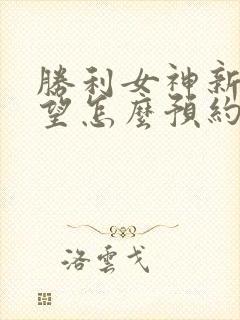 勝利女神新
望怎麼預約
洛雲戈